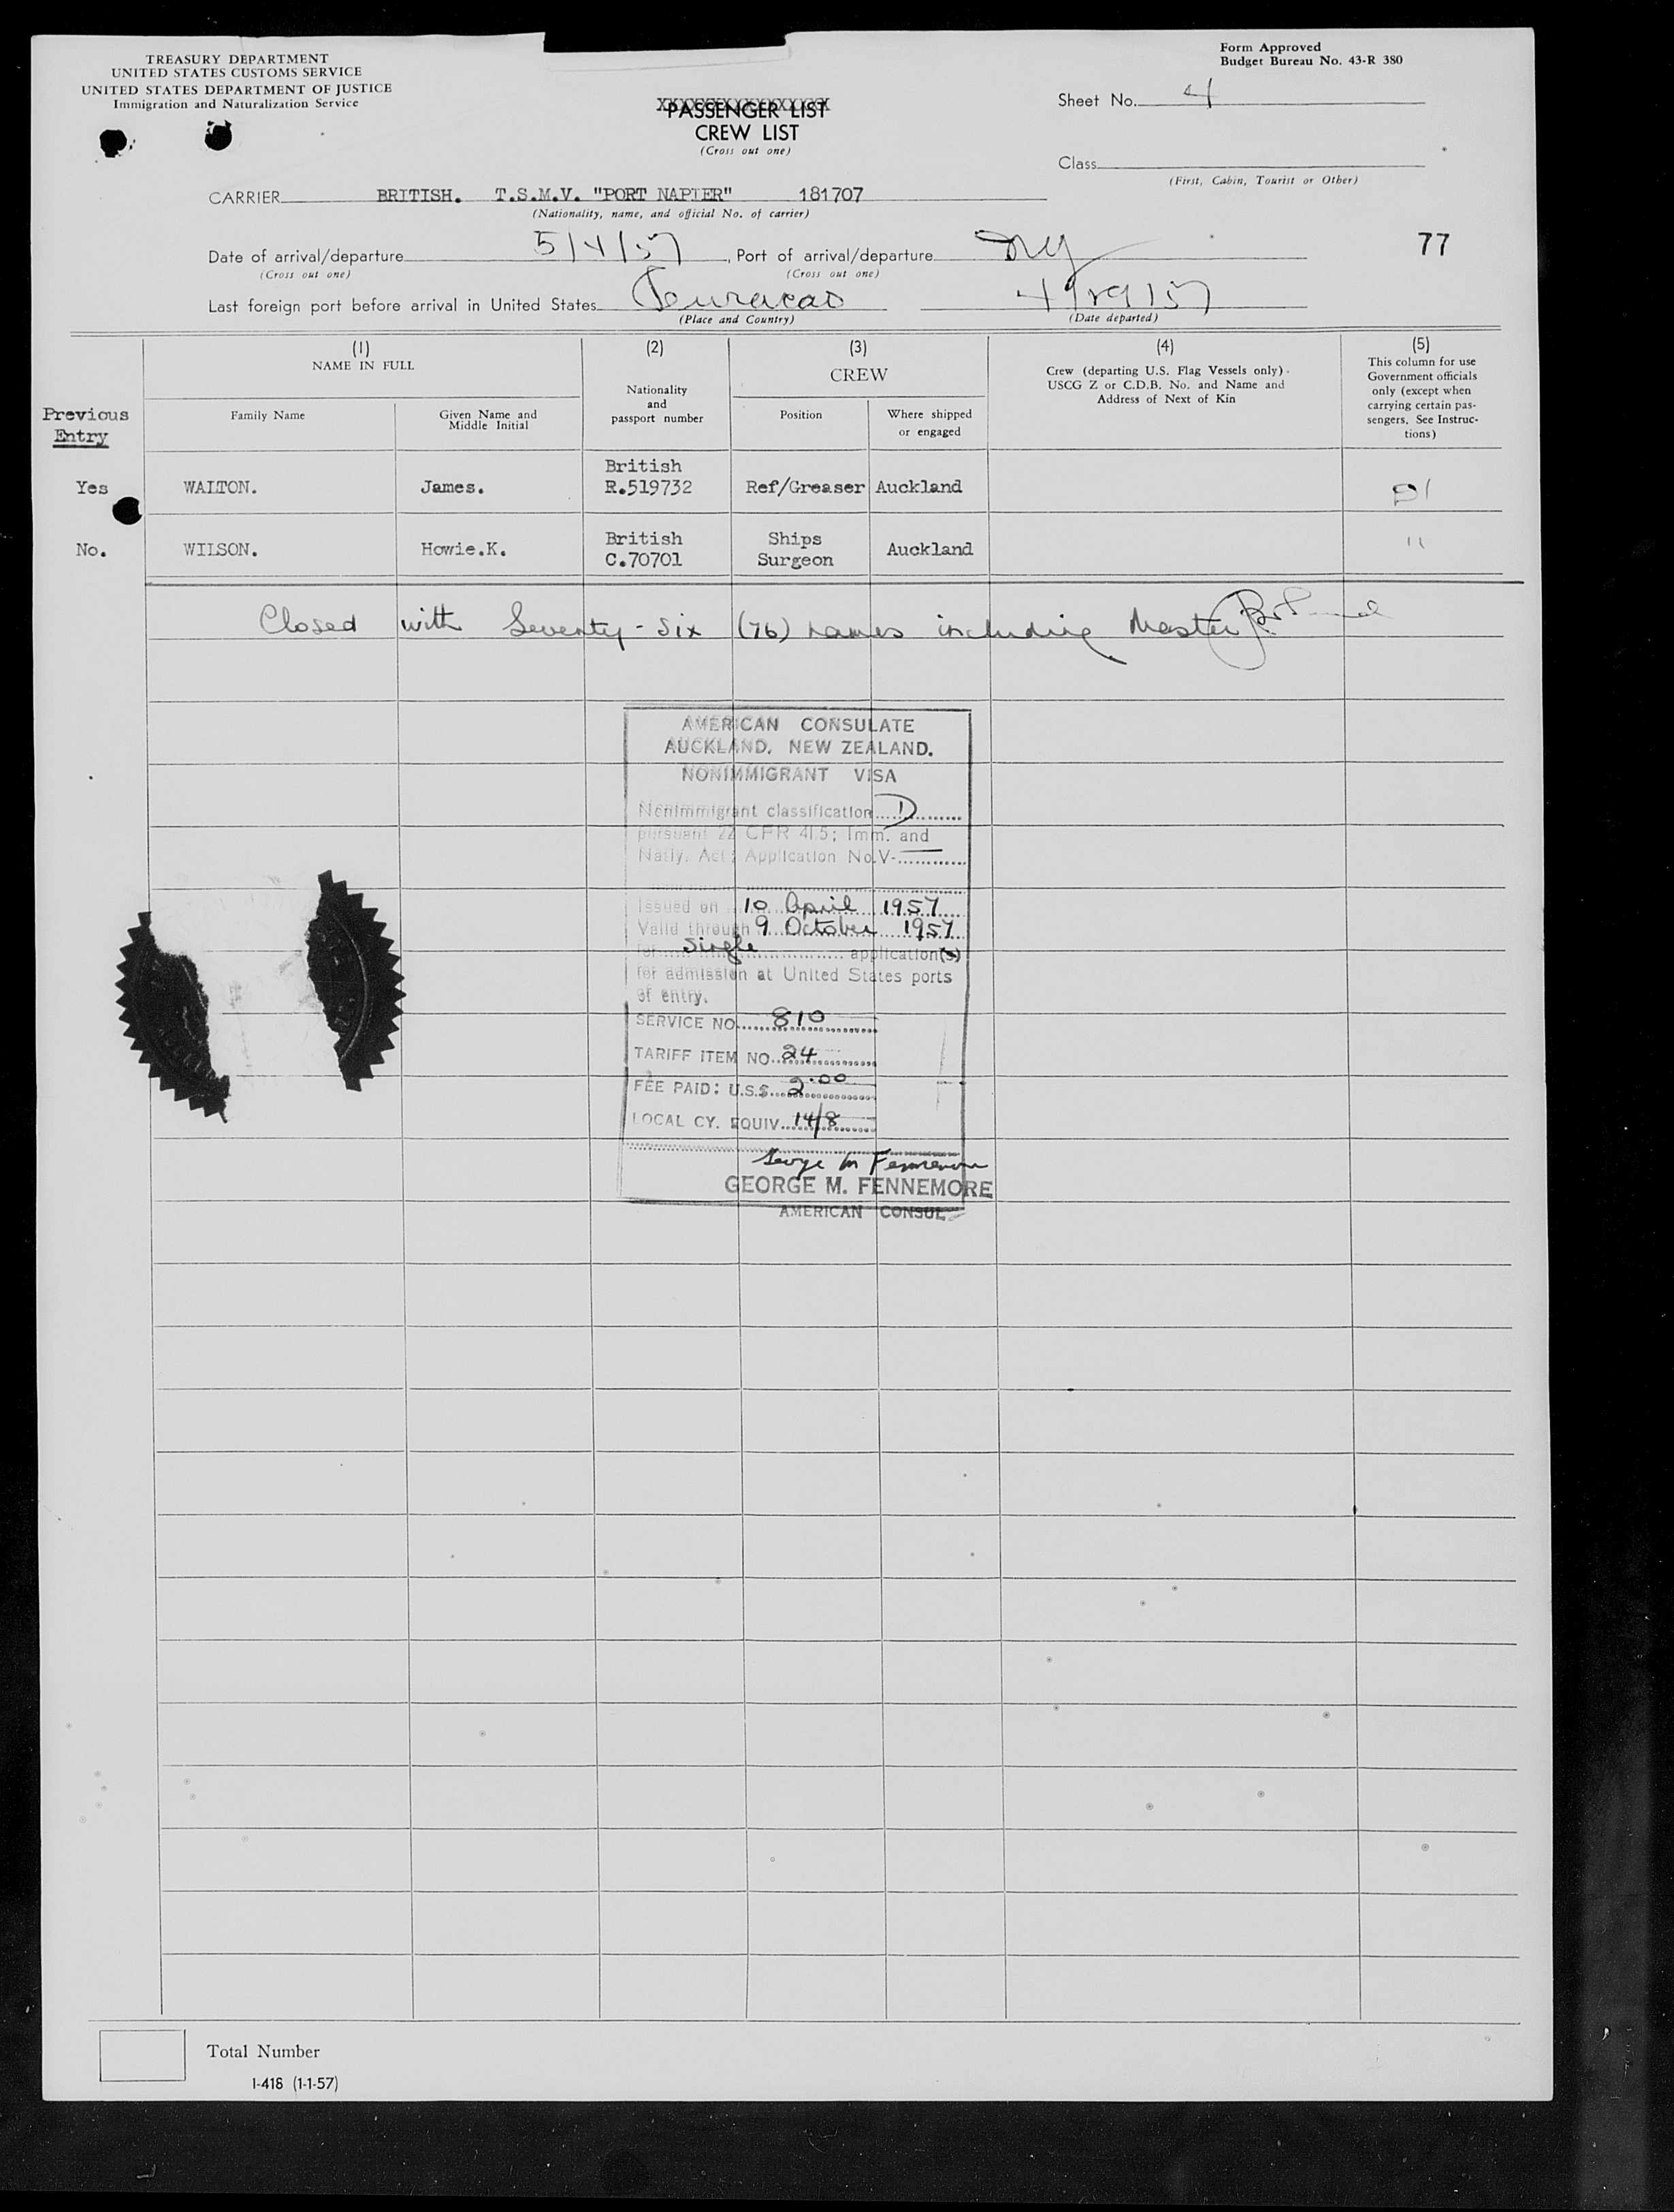 TREASURY DEPARTMENT
UNITED STATES CUSTOMS SERVICE
UNITED STATES DEPARTMENT OF JUSTICE
Immigration and Naturalization Service
Form Approved
Budget Bureau No. 43-R 380
PASSENGER LIST
CREW LIST
(Cross out one)
Sheet No. 4
Class
(First, Cabin, Tourist or Other)
CARRIER BRITISH. T.S.M.V. "PORT NAPIER" 181707
(Nationality, name, and official No. of carrier)
Date of arrival/departure 5/4/57, Port of arrival/departure NY
(Cross out one) (Cross out one)
77
Last foreign port before arrival in United States Curacao 4/29/57
(Place and Country) (Date departed)
(1) (2) (3) (4) (5)
NAME IN FULL
Nationality
and
passport number
CREW
Crew (departing U.S. Flag Vessels only) -
USCG Z or C.D.B. No. and Name and
Address of Next of Kin
This column for use
Government officials
only (except when
carrying certain pas-
sengers. See Instruc-
tions)
Previous
Entry
Family Name
Given Name and
Middle Initial
Position
Where shipped
or engaged
British
Yes WALTON. James. R.519732 Ref/Greaser Auckland
British Ships
No. WILSON. Howie.K. C.70701 Surgeon Auckland
Closed with Seventy-Six (76) names including Master
AMERICAN CONSULATE
AUCKLAND, NEW ZEALAND.
NONIMMIGRANT VISA
Nonimmigrant classification D
pursuant 22 CFR 41.5; Imm. and
Natly. Act; Application No.V-
Issued on 10 April 1957
Valid through 9 October 1957
for single application(s)
for admission at United States ports
of entry.
SERVICE NO. 810
TARIFF ITEM NO. 24
FEE PAID: U.S.$. 2.00
LOCAL CY. EQUIV. 14/8
George M Fennemore
GEORGE M. FENNEMORE
AMERICAN CONSUL
Total Number
I-418 (1-1-57)